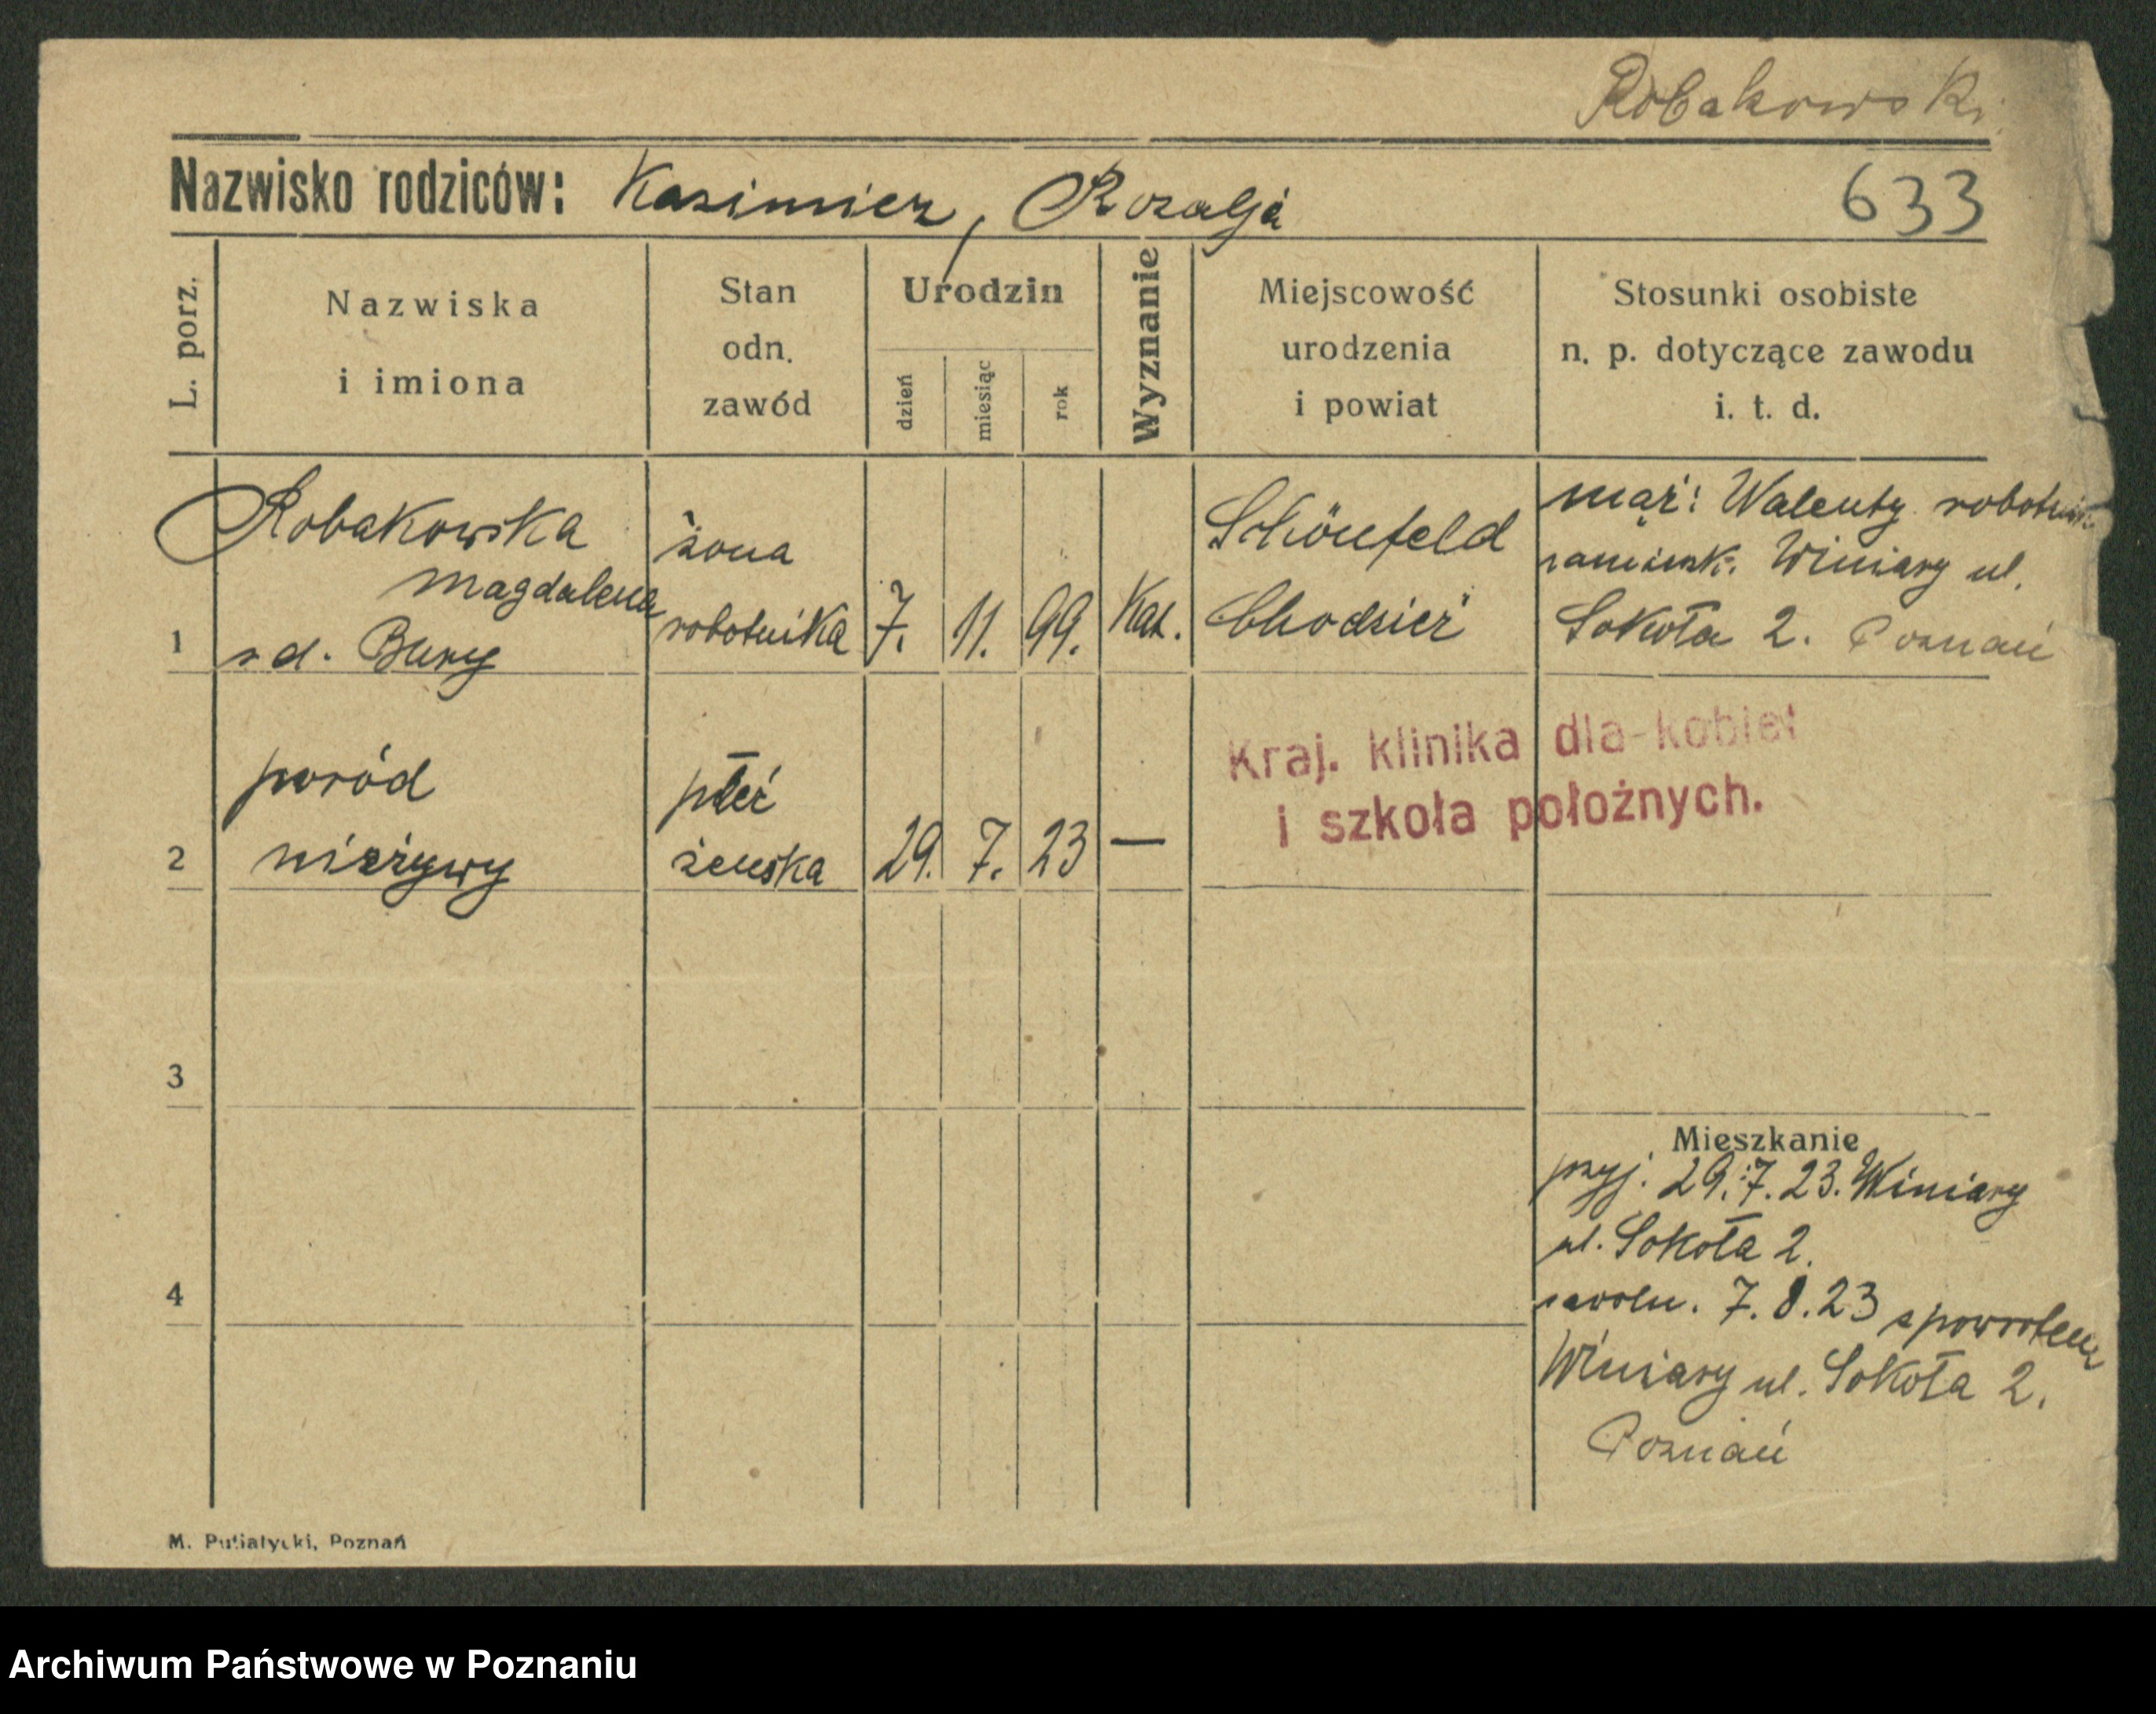 Robakowski
Nazwisko rodziców: Kazimierz, Rozalja
633
L. porz.
Nazwiska
i imiona
Stan
odn.
zawód
Urodzin
dzień
miesiąc
rok
Wyznanie
Miejscowość
urodzenia
i powiat
Stosunki osobiste
n. p. dotyczące zawodu
i. t. d.
1
Robakowska
Magdalena
z d. Bury
żona
robotnika
7. 11. 99.
Kat.
Schönfeld
Chodzież
mąż: Walenty robotnik
zamieszk. Winiary ul.
Sokoła 2. Poznań
2
poród
nieżywy
płeć
żeńska
29. 7. 23 —
Kraj. klinika dla kobiet
i szkoła położnych.
3
4
Mieszkanie
przyj. 29.7.23. Winiary
ul. Sokoła 2.
zwoln. 7.8.23 z powrotem
Winiary ul. Sokoła 2.
Poznań
M. Putiatycki, Poznań
Archiwum Państwowe w Poznaniu